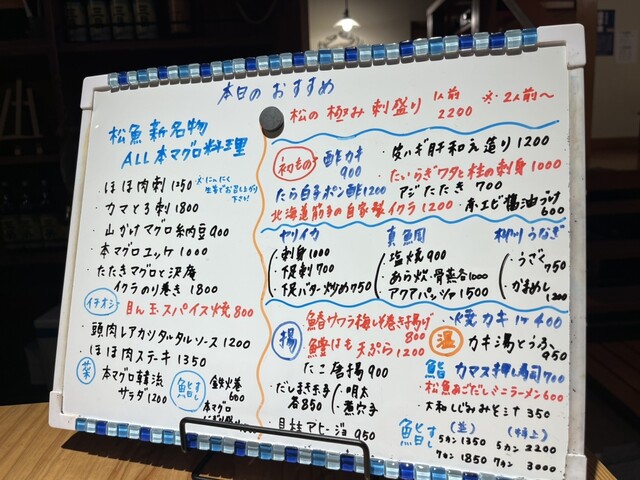 本日のおすすめ
松魚新名物
ALL本マグロ料理
・ほほ肉刺 1250
※にんにく
生姜でお召し上がり
下さい!
・カマとろ刺 1800
・山かけマグロ納豆 900
・本マグロユッケ 1000
・たたきマグロと沢庵
イクラのり巻き 1800
イチオシ
目ん玉スパイス焼 800
・頭肉レアカツタルタルソース 1200
・ほほ肉ステーキ 1350
菜
・本マグロ韓浜
サラダ 1200
鮨
鉄火巻
660
本マグロ
松の極み刺盛り 1人前
2200
※2人前〜
初もの
酢カキ
900
・皮ハギ肝和え造り 1200
・たいらぎワタと柱の刺身 1000
たら白子ポン酢 1200
・アジたたき 700
北海道筋子の自家製イクラ 1200
・赤エビ醤油づけ
600
ヤリイカ
・刺身 1000
・下足刺 700
・下足バター炒め 750
真鯛
・塩焼 900
・あら炊・骨蒸各 1000
・アクアパッツァ 1500
柳川うなぎ
・うざく
750
・かまめし
1200
揚
・鰆サワラ梅しそ巻き揚げ
800
・鱧はも天ぷら 1200
・たこ唐揚 900
・だしまき玉子
各850
・明太
・煮穴子
・貝柱アヒージョ 950
・焼カキ 1ヶ 400
温
・カキ湯とうふ
950
鮨
カマス押し寿司 700
・松魚あごだしミニラーメン 600
・大和しじみみそ汁 350
鮨
(並)
(特上)
5カン 1350
5カン 2200
7カン 1850
7カン 3000